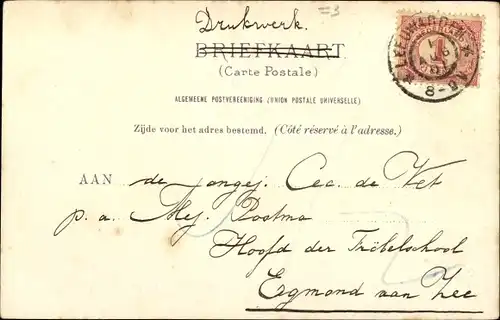 Drukwerk. =3
BRIEFKAART
(Carte Postale)
ALGEMEENE POSTVEREENIGING (UNION POSTALE UNIVERSELLE)
Zijde voor het adres bestemd. (Côté réservé à l'adresse.)
LEEUWARDEN
8-9V
1
AAN de Jongej. Cec. de Vet
p. a. Mej. Postma
Hoofd der Fröbelschool
Egmond van Zee